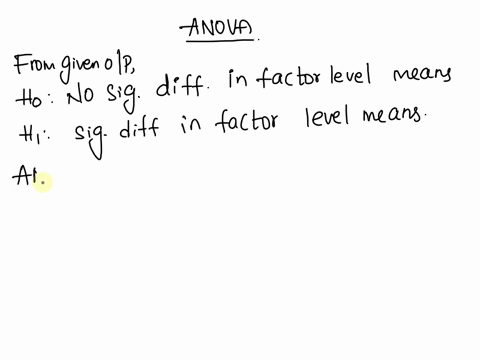 ANOVA.
From given o|P,
H0: No sig. diff. in factor level means
H1: sig. diff in factor level means.